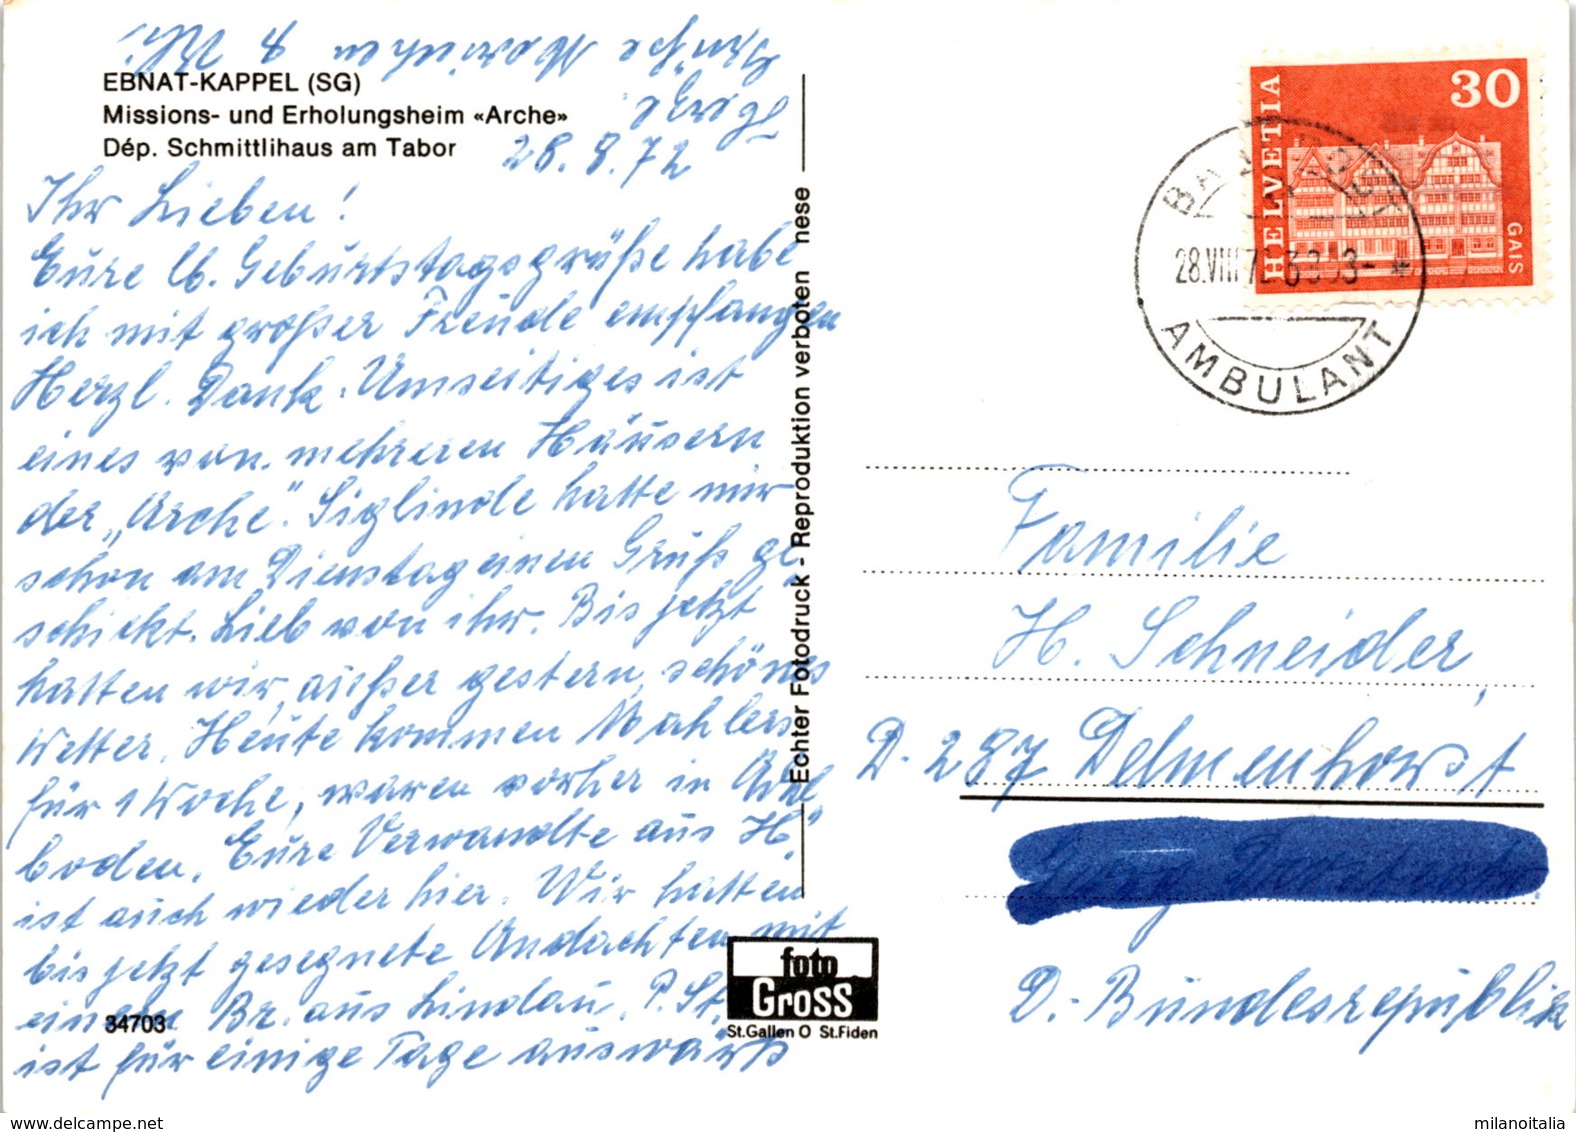 EBNAT-KAPPEL (SG)
Missions- und Erholungsheim «Arche»
Dép. Schmittlihaus am Tabor
28.8.72
Ihr Lieben!
Eure lb. Geburtstagsgrüße habe
ich mit großer Freude empfangen
Herzl. Dank. Umseitiges ist
eines von mehreren Häusern
der „Arche". Siglinde hatte mir
schon am Dienstag einen Gruß ge
schickt. Lieb von ihr. Bis jetzt
hatten wir, außer gestern, schönes
Wetter. Heute kommen Mahlers
für 1 Woche, waren vorher in Adel
boden. Eure Verwandte aus H.
ist auch wieder hier. Wir hatten
bis jetzt gesegnete Andachten mit
einem Br. aus Lindau. P. St.
ist für einige Tage auswärts
34703
Echter Fotodruck - Reproduktion verboten nese
foto
Gross
St.Gallen O St.Fiden
HELVETIA
30
GAIS
28.VIII
AMBULANT
Familie
H. Schneider
D-287 Delmenhorst
D.-Bundesrepublik
milanoitalia
www.delcampe.net